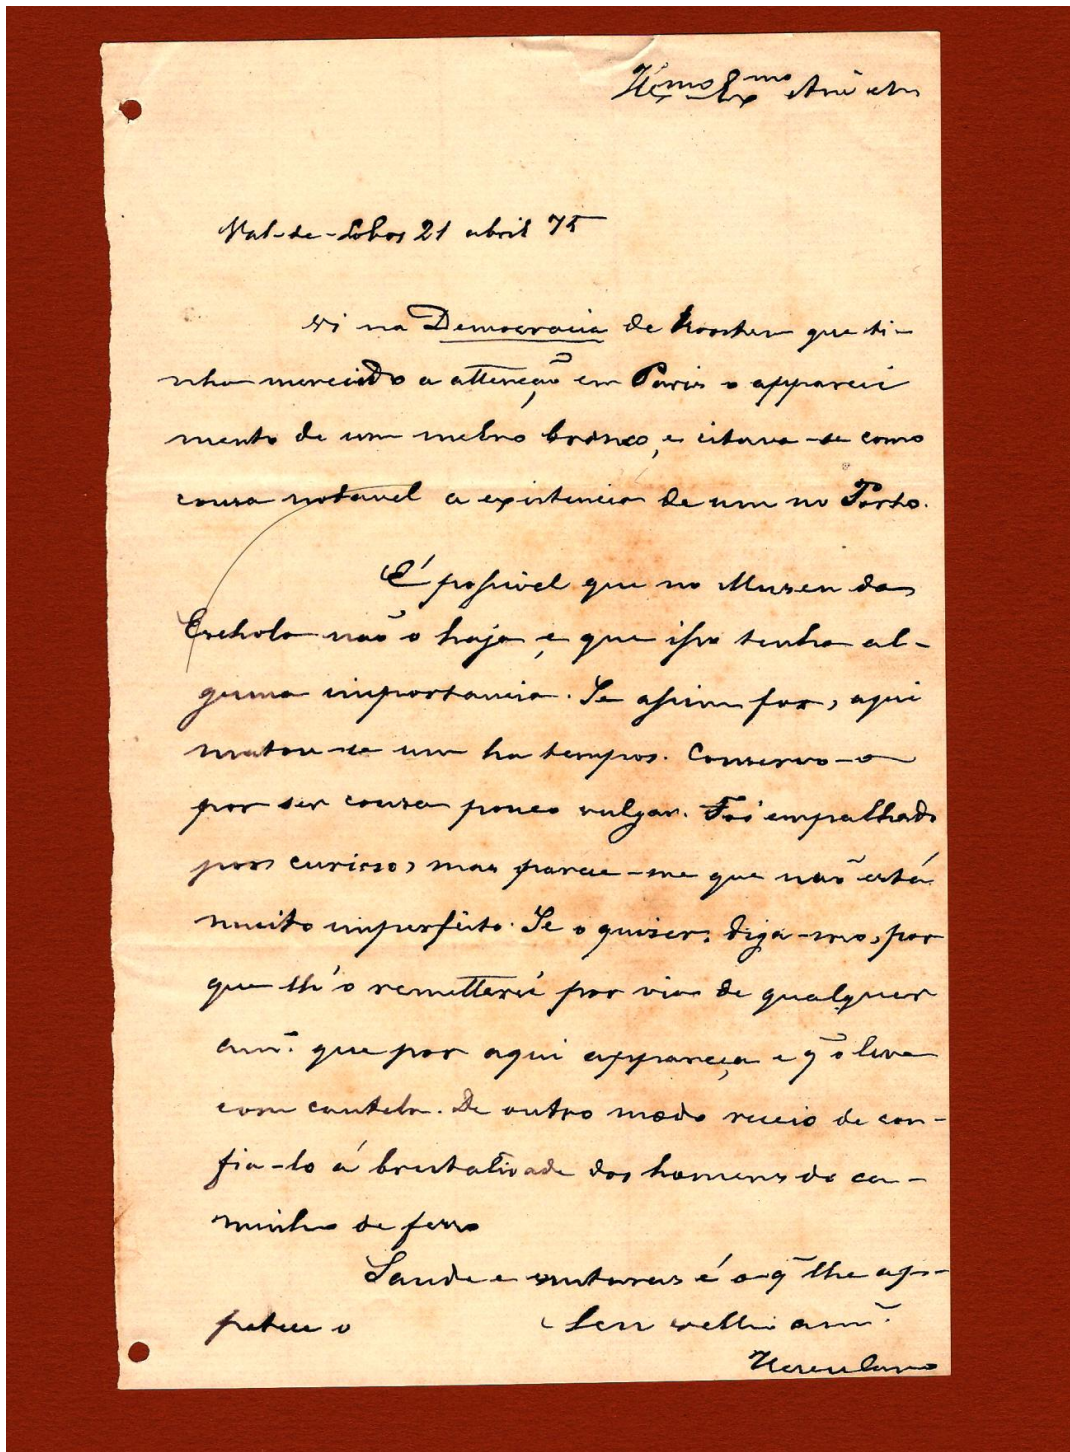 Ill.mo Ex.mo
Val-de-Lobos 21 abril 75
Vi na Democracia de hontem que ti-
nha merecido a attenção em Paris o appareci
mento de um melro branco, e citava-se como
cousa notavel a existencia de um no Porto.
É possivel que no Museu da
Eschola não o haja, e que isso tenha al-
guma importancia. Se assim for, aqui
matou-se um ha tempos. Conservo-o
por ser cousa pouco vulgar. Foi empalhado
por curioso, mas parece-me que não está
muito imperfeito. Se o quiser, diga-mo, por
que lh'o remetterei por via de qualquer
am.º que por aqui appareça e q̃ o leve
com cautela. De outro modo receio de con-
fia-lo á brutalidade dos homens do ca-
minho de ferro
Saude e venturas é o q̃ lhe ap-
petece o Seu velho am.º
Herculano